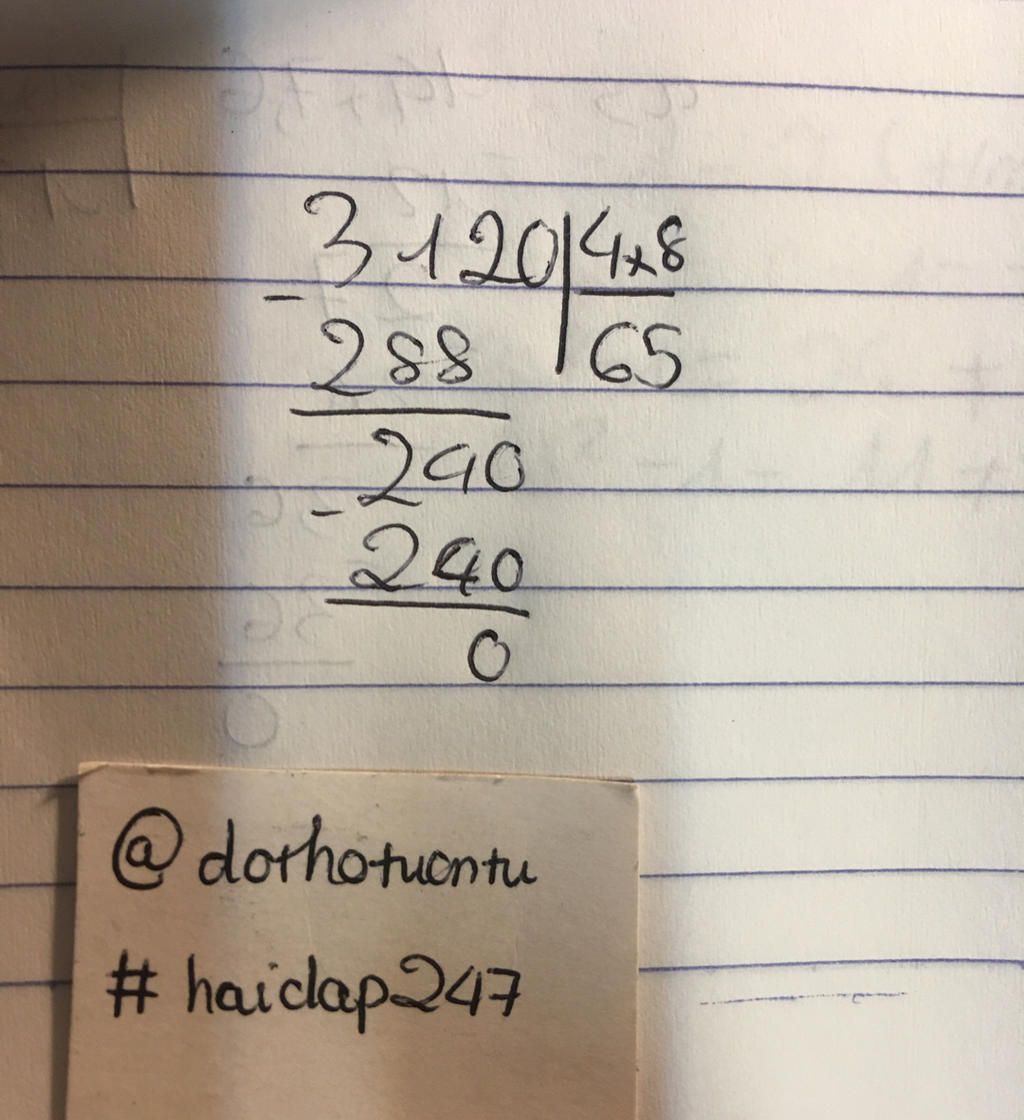 3120 4x8
- 
288 65
240
-
240
0
@dorhotuontu
#haidap247